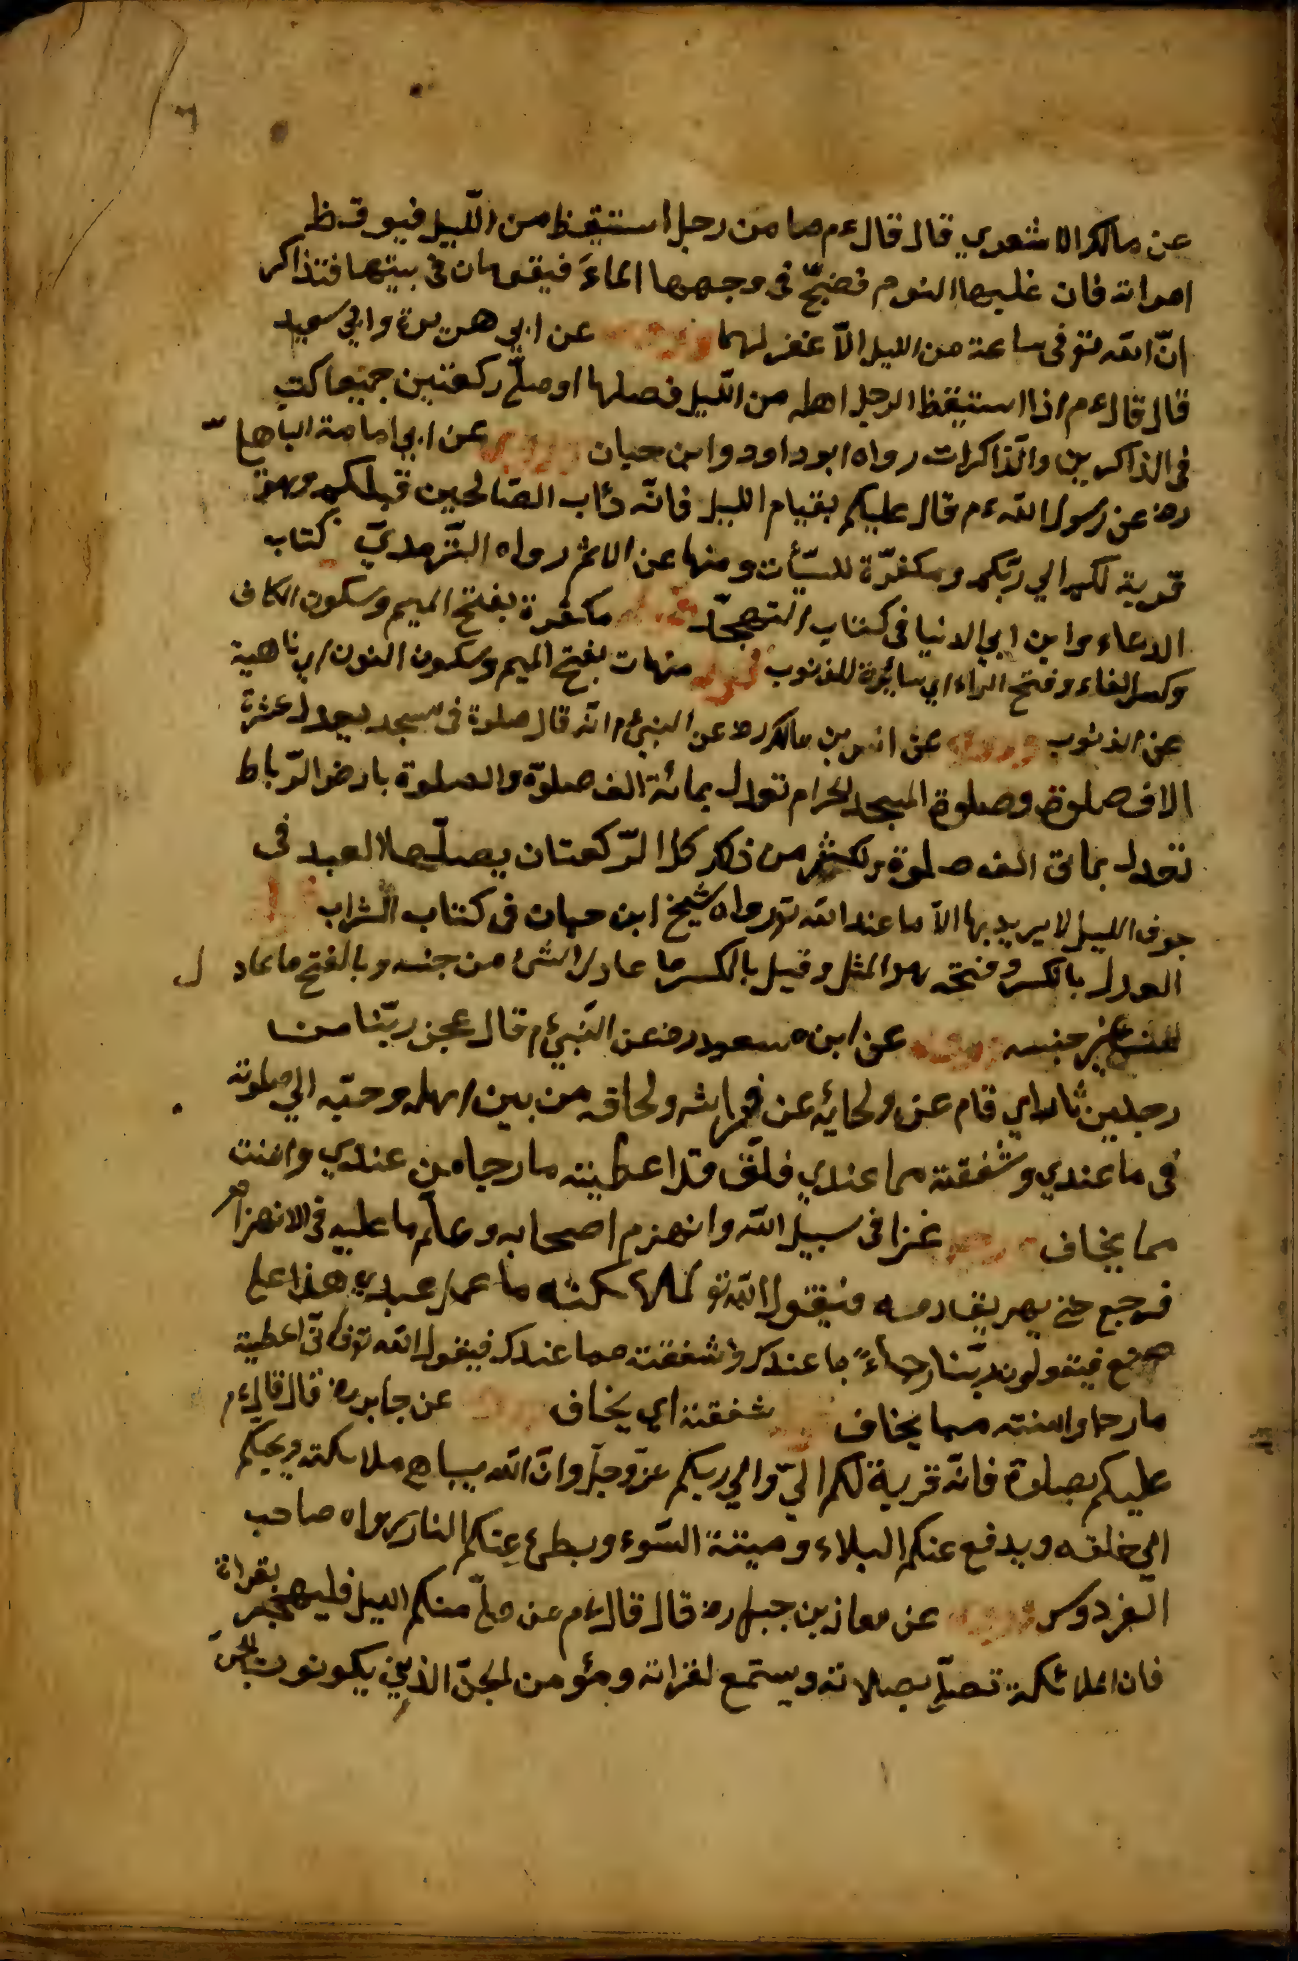 عن مالك الاشعري قال قال ءم ما من رجل استيقظ من اللّيل فيوقظ
امراته فان غلبها النوم فضبّح فى وجهها الماءَ فيقومان فى بيتهما فتذاكر
انّ الله تو فى ساعة من الليل الاّ غفر لهما عن ابي هريرة وابي سعيد
قال قال ءم اذا استيقظ الرجل اهله من اللّيل فصلها او صلّى ركعتين جميعا كتب
فى الذاكرين والذّاكرات رواه ابو داود وابن حبان عن ابي امامة الباهلي
رض عن رسول الله ءم قال عليكم بقيام الليل فانّه دئاب الصّالحين قبلكم وهو
قربة لكم الي ربّكم ومكفرّة للسّيأت ومنها عن الاثم رواه التّرمديّ كتاب
الدعاء وابن ابي الدنيا فى كتاب التهجّد مكفرة بفتح الميم وسكون الكاف
وكسر الفاء وفتح الراء اي ساترة للذنوب قوله منهات بفتح الميم وسكون النون اي ناهية
عن الذنوب عن انس بن مالك رض عن النبيّ ءم انّه قال صلوة فى مسجد يعدل عشرة
الاف صلوة وصلوة المسجد الحرام تعدل بمائة الف صلوة والصلوة بارض الرّباط
تعدل بمائ الف صلوة ولكثر من ذلك كل الرّكعتان يصلّيها العبد فى
جوف الليل لا يريد بها الاّ ما عند الله تو رواه شيخ ابن حبان فى كتاب الشراب
العدل بالكسر وفتحه هو المثل وقيل بالكسر ما عادل الشئ من جنسه وبالفتح ما عاد ل
من غير جنسه عن ابن مسعود رض عن النّبيّ ءم قال عجز ربّنا من
رجلين ثار اي قام عن ولحائه عن فراشه ولحافه من بين اهله وحبّه الي صلوته
فى ما عندي وشفقة مما عندي فلقّ قد اعطيته ما رجا من عندي وامنت
مما يخاف غزا فى سبيل الله وانهزم اصحابه وعلّم ما عليه فى الانهزام
فرجع حتى يهريق دمه فيقول الله تو لملائكته ما عمل عبدي هذا على
صنع فيقولون ربّنا رجاءً ما عندك وشفقته مما عندك فيقول الله تو فانّى اعطيته
ما رجا وامنته مما يخاف شفقته اي يخاف عن جابر رض قال قال ءم
عليكم بصلوة فانّه قربة لكم اليّ والي ربكم عزّ وجلّ وانّ الله يباهي ملائكته ويحبّكم
الي خلقه ويدفع عنكم البلاء وميتة السّوء ويطئ عنكم النار رواه صاحب
الفردوس عن معاذ بن جبل رض قال قال ءم من صلّى منكم الليل فليجهر بقراة
فان الملائكة تصلّي بصلاته ويستمع لقراته ومؤمن الجنّ الذين يكونون